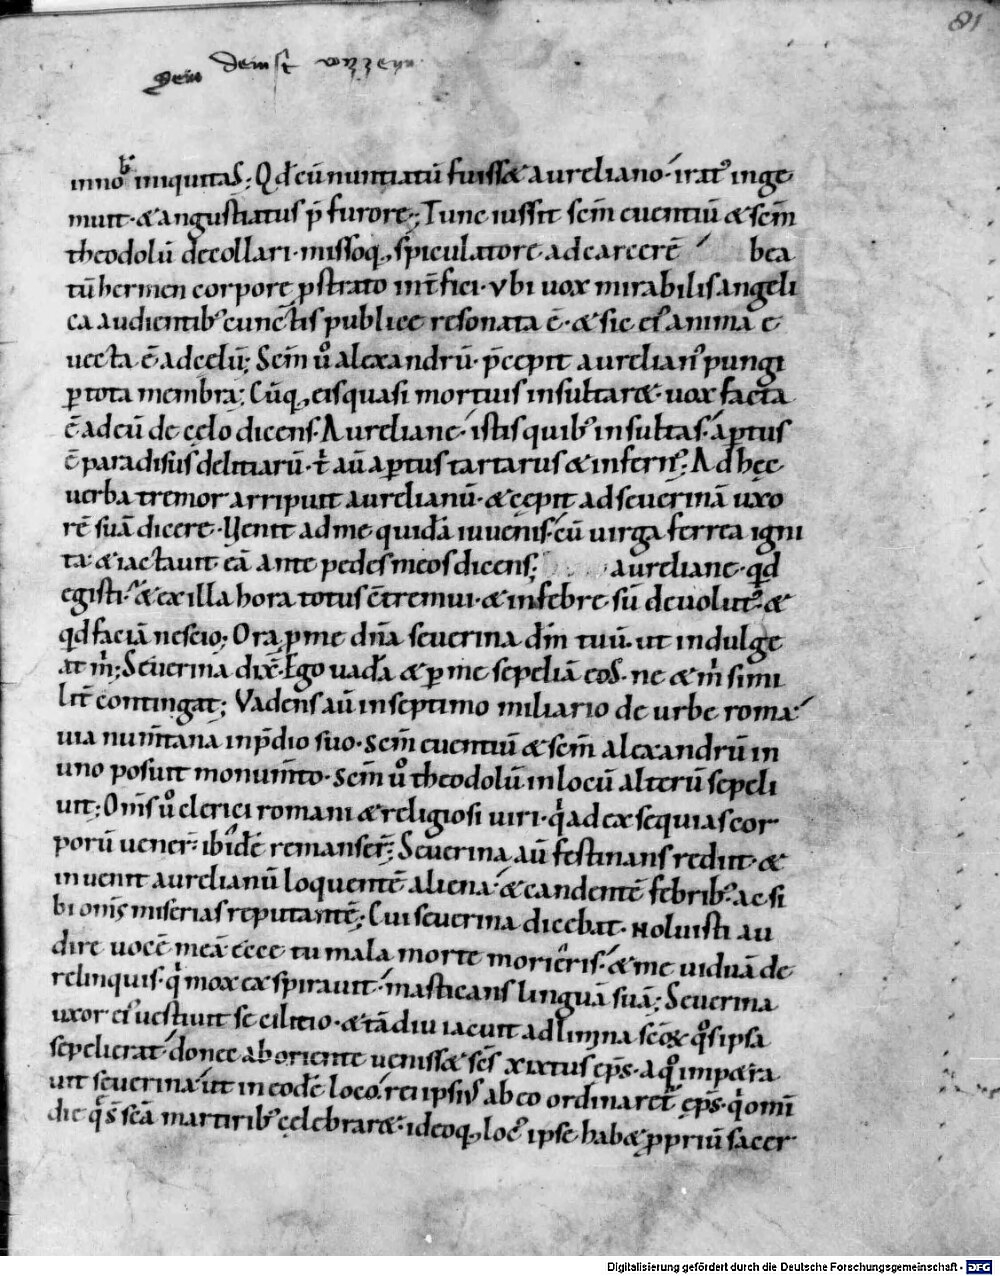 81
Dein deinst
inno iniquitas; Qd̄ cū nuntiatū fuiss& aureliano· irat' inge
muit· & angustiatus p̄ furore; Tunc iussit sc̄m euentiū & sc̄m
theodolū decollari· missoq; spiculatore ad carcerē bea
tū hermen corpore pstrato int̄fici· vbi uox mirabilis angeli
ca audientib; cunctis publice resonata ē· & sic ei' anima e
uecta ē ad cęlū; Sc̄m ů alexandrū· p̄cepit aurelian' pungi
p tota membra; Cūq; eis quasi mortuis insultar&· uox facta
ē ad eū de cęlo dicens· Aureliane· istis quib; insultas· aptus
ē paradisus delitiarū· t̄ aū aptus tartarus & infern'; Ad hęc
uerba tremor arripuit aurelianū· & cępit ad seuerinā uxo
rē suā dicere· Uenit ad me quidā iuuenis· cū uirga ferrea igni
ta· & iactauit eā ante pedes meos dicens; aureliane· qd
egisti· & ex illa hora totus c̄tremui· & in febre sū deuolut'· &
qd faciā nescio; Ora p me dn̄a seuerina dm̄ tuū· ut indulge
at m̄; Seuerina dix̄· Ego uadā & p me sepeliā eos· ne & m̄ simi
lit̄ contingat; Vadens aū in septimo miliario de urbe roma·
uia num̄tana in p̄dio suo· sc̄m euentiū & sc̄m alexandrū in
uno posuit monum̄to· sc̄m ů theodolū in locū alterū sepeli
uit; Om̄s ů clerici romani & religiosi uiri· q̄ ad exsequias cor
porū uener̄· ibidē remanser̄; Seuerina aū festinans rediit· &
inuenit aurelianū loquentē aliena· & candentē febrib;· ac si
bi om̄s miserias reputantē; Cui seuerina dicebat· Noluisti au
dire uocē meā ecce tu mala morte morieris· & me uiduā de
relinquis· q̄ mox exspirauit· masticans linguā suā; Seuerina
uxor ei' uestiuit se cilitio· & tādiu iacuit ad limina sc̄o& q̊s ipsa
sepelierat· donec ab oriente ueniss& sc̄s xixtus ep̄s· a q̊ imp&ra
uit seuerina· ut in eodē loco· rei ipsius ab eo ordinaret̄ ep̄s· q̄ omi
die q̄s sc̄a martirib; cęlebrar&· ideoq; loc' ipse hab& ppriū sacer
Digitalisierung gefördert durch die Deutsche Forschungsgemeinschaft - DFG